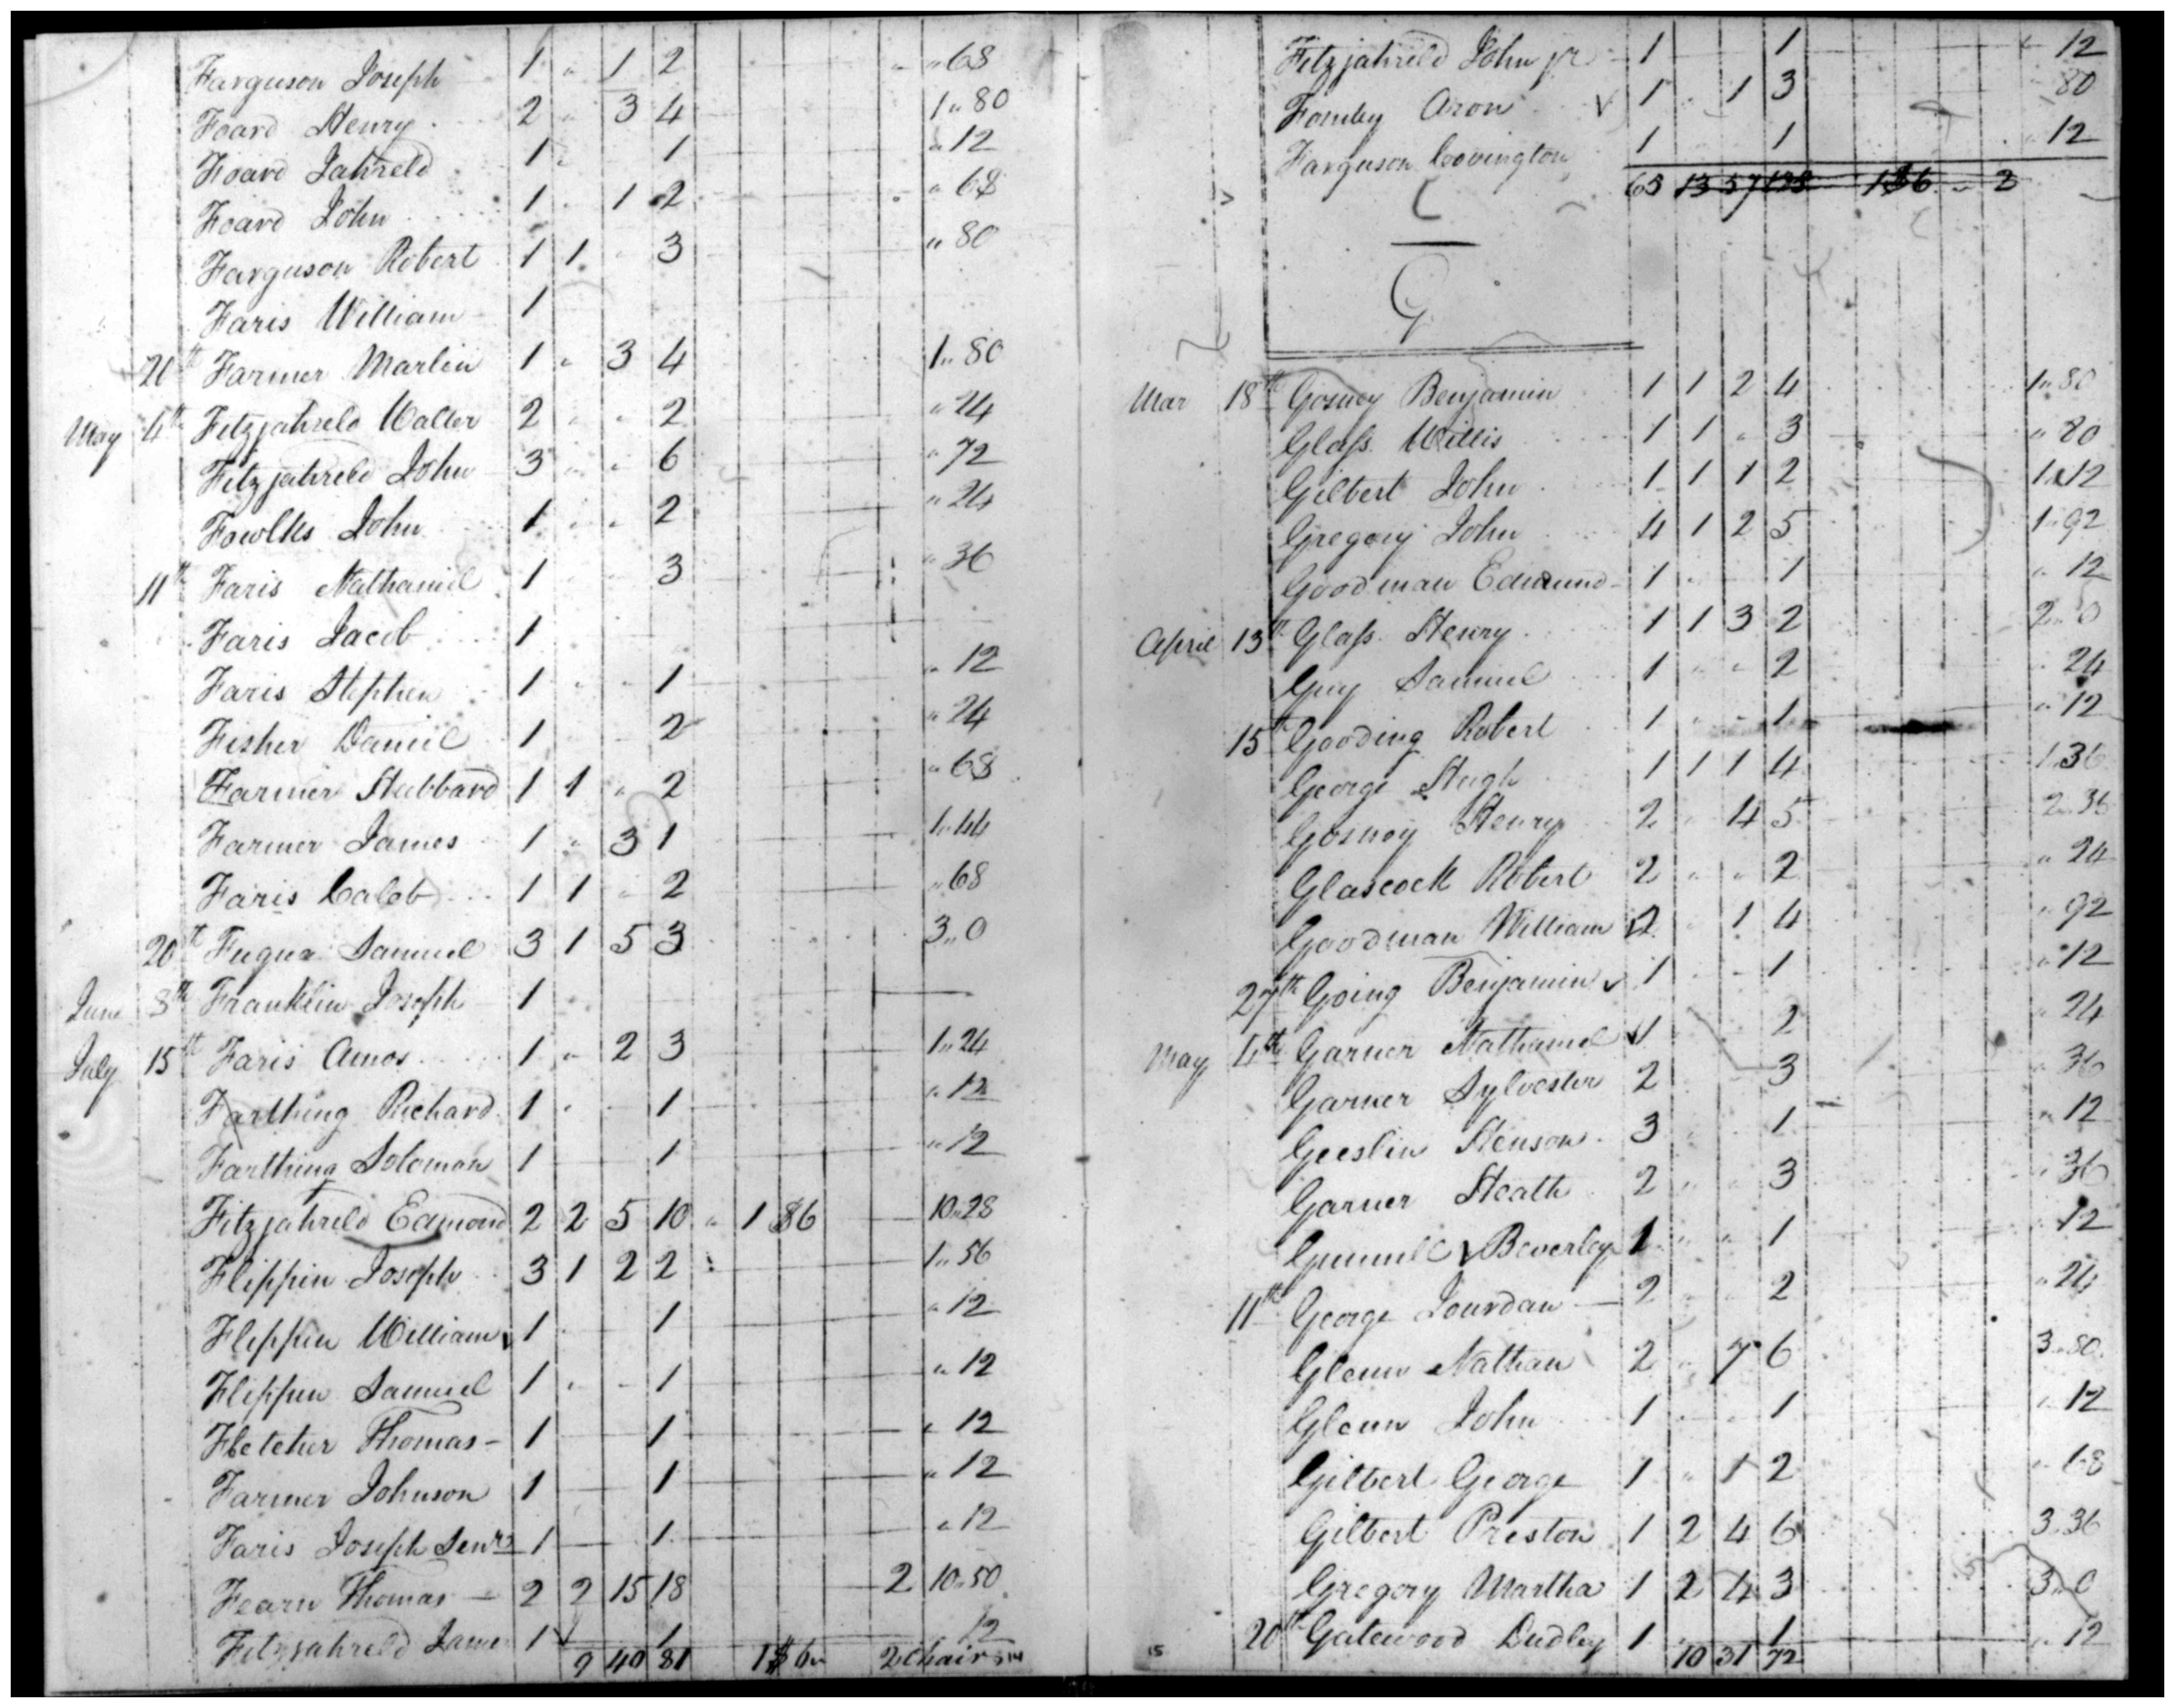 Farguson Joseph 1 " 1 2 " 68
Foard Henry 2 " 3 4 1 " 80
Foard Jahreld 1 " 1 " 12
Foard John 1 " 1 2 " 68
Farguson Robert 1 1 " 3 " 80
Faris William 1
20th Farmer Marlin 1 " 3 4 1 " 80
May 4th Fitzjahreld Walter 2 " " 2 " 24
Fitzjahreld John 3 " " 6 " 72
Fowlks John 1 " " 2 " 24
11th Faris Nathaniel 1 " " 3 " 36
Faris Jacob 1
Faris Stephen 1 " " 1 " 12
Fisher Daniel 1 2 " 24
Farmer Hubbard 1 1 " 2 " 68
Farmer James 1 " 3 1 1 " 44
Faris Caleb 1 1 " 2 " 68
20th Fuqua Samuel 3 1 5 3 3 " 0
June 8th Franklin Joseph 1 "
July 15th Faris Amos 1 " 2 3 1 " 24
Farthing Richard 1 " " 1 " 12
Farthing Solomon 1 1 " 12
Fitzjahreld Edmond 2 2 5 10 " 1 $86 10 " 28
Flippin Joseph 3 1 2 2 1 " 56
Flippin William 1 1 " 12
Flippin Samuel 1 " " 1 " 12
Fletcher Thomas 1 1 " 12
Farmer Johnson 1 1 " 12
Faris Joseph Senr 1 1 " 12
Fearn Thomas 2 2 15 18 2 10 " 50
Fitzjahreld James 1 1 " 12
9 40 81 2 Chair
Fitzjahreld John jr 1 1 " 12
Fomby Aron 1 " 1 3 80
Farguson Covington 1 1 " 12
65 13 57 2
G
Mar 18th Gosney Benjamin 1 1 2 4 1 " 80
Glass Willis 1 1 " 3 " 80
Gilbert John 1 1 1 2 1 " 12
Gregory John 4 1 2 5 1 " 92
Goodman Edmund 1 " 1 " 12
April 13th Glass Henry 1 1 3 2 2 " 0
Guy Samuel 1 " " 2 " 24
15th Gooding Robert 1 " " 1 " 12
George Hugh 1 1 1 4 1 36
Gosney Henry 2 " 4 5 2 " 36
Glascock Robert 2 " " 2 " 24
Goodman William 2 " 1 4 " 92
27th Going Benjamin 1 " " 1 " 12
May 4th Garner Nathaniel 1 2 " 24
Garner Sylvester 2 3 " 36
Geeslin Henson 3 1 " 12
Garner Heath 2 " " 3 " 36
Beverley 1 " " 1 " 12
11th George Jourdan 2 " " 2 " 24
Glenn Nathan 2 " 7 6 3 " 80
Glenn John 1 " " 1 " 12
Gilbert George 1 " 1 2 " 68
Gilbert Preston 1 2 4 6 3 " 36
Gregory Martha 1 2 4 3 3 " 0
20th Gatewood Dudley 1 1 " 12
15 10 31 72